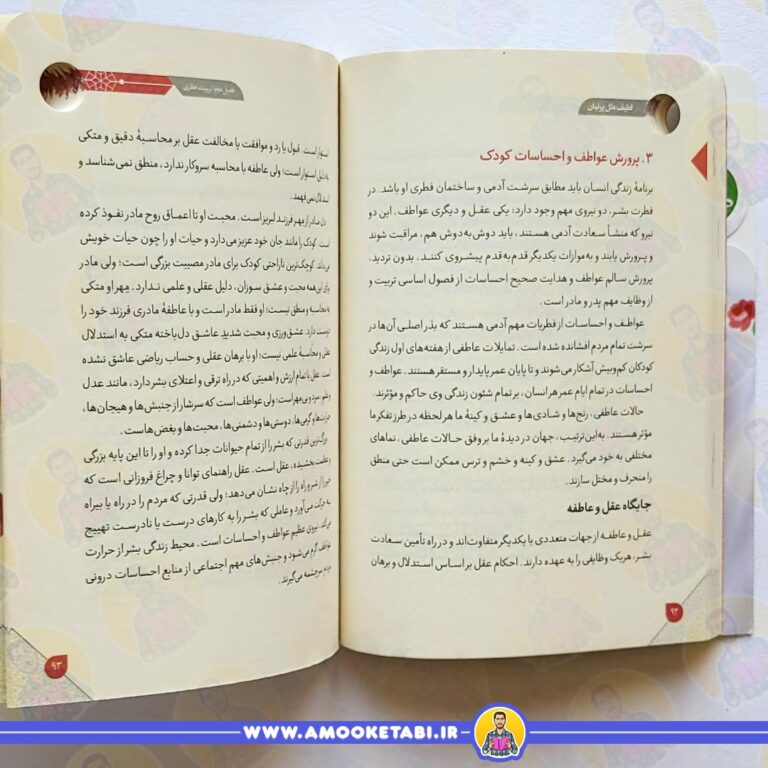 لطیف مثل پرنیان
۳. پرورش عواطف و احساسات کودک
برنامهٔ زندگی انسان باید مطابق سرشت آدمی و ساختمان فطری او باشد. در
فطرت بشر، دو نیروی مهم وجود دارد: یکی عقل و دیگری عواطف. این دو
نیرو که منشأ سعادت آدمی هستند، باید دوش‌به‌دوش هم، مراقبت شوند
و پرورش یابند و به‌موازات یکدیگر قدم‌به‌قدم پیشروی کنند. بدون تردید،
پرورش سالم عواطف و هدایت صحیح احساسات از فصول اساسی تربیت و
از وظایف مهم پدر و مادر است.
عواطف و احساسات از فطریات مهم آدمی هستند که بذر اصلی آن‌ها در
سرشت تمام مردم افشانده شده است. تمایلات عاطفی از هفته‌های اول زندگی
کودکان کم‌وبیش آشکار می‌شوند و تا پایان عمر پایدار و مستقر هستند. عواطف و
احساسات در تمام ایام عمر هر انسان، بر تمام شئون زندگی وی حاکم و مؤثرند.
حالات عاطفی، رنج‌ها و شادی‌ها و عشق و کینهٔ ما هر لحظه در طرز تفکر ما
مؤثر هستند. به‌این‌ترتیب، جهان در دیدهٔ ما بر وفق حالات عاطفی، نماهای
مختلفی به خود می‌گیرد. عشق و کینه و خشم و ترس ممکن است حتی منطق
را منحرف و مختل سازند.
جایگاه عقل و عاطفه
عقل و عاطفه از جهات متعددی با یکدیگر متفاوت‌اند و در راه تأمین سعادت
بشر، هریک وظایفی را به عهده دارند. احکام عقل بر اساس استدلال و برهان
۹۲
فصل دوم: تربیت فطری
استوار است. قبول یا رد و موافقت یا مخالفت عقل بر محاسبهٔ دقیق و متکی
به دلیل استوار است؛ ولی عاطفه با محاسبه سروکار ندارد، منطق نمی‌شناسد و
استدلال نمی‌فهمد.
دل مادر از مهر فرزند لبریز است. محبت او تا اعماق روح مادر نفوذ کرده
است. کودک را مانند جان خود عزیز می‌دارد و حیات او را چون حیات خویش
می‌داند. کوچک‌ترین ناراحتی کودک برای مادر مصیبت بزرگی است؛ ولی مادر
برای این همه محبت و عشق سوزان، دلیل عقلی و علمی ندارد. مهر او متکی
به محاسبه و منطق نیست؛ او فقط مادر است و با عاطفهٔ مادری فرزند خود را
دوست دارد. عشق‌ورزی و محبت شدید عاشق دل‌باخته متکی به استدلال
عقلی و محاسبهٔ علمی نیست؛ او با برهان عقلی و حساب ریاضی عاشق نشده
است. عقل با تمام ارزش و اهمیتی که در راه ترقی و اعتلای بشر دارد، مانند عدل
و علم، سرد و بی‌مهر است؛ ولی عواطف است که سرشار از جنبش‌ها و هیجان‌ها،
حرارت‌ها و گرمی‌ها، دوستی‌ها و دشمنی‌ها، محبت‌ها و بغض‌هاست.
بزرگ‌ترین قدرتی که بشر را از تمام حیوانات جدا کرده و او را تا این پایه بزرگی
و عظمت بخشیده، عقل است. عقل راهنمای توانا و چراغ فروزانی است که
خیر را از شر و راه را از چاه نشان می‌دهد؛ ولی قدرتی که مردم را در راه یا بیراه
به حرکت می‌آورد و عاملی که بشر را به کارهای درست یا نادرست تهییج
می‌کند، نیروی عظیم عواطف و احساسات است. محیط زندگی بشر از حرارت
عواطف گرم می‌شود و جنبش‌های مهم اجتماعی از منابع احساسات درونی
مردم سرچشمه می‌گیرند.
۹۳
WWW.AMOOKETABI.IR